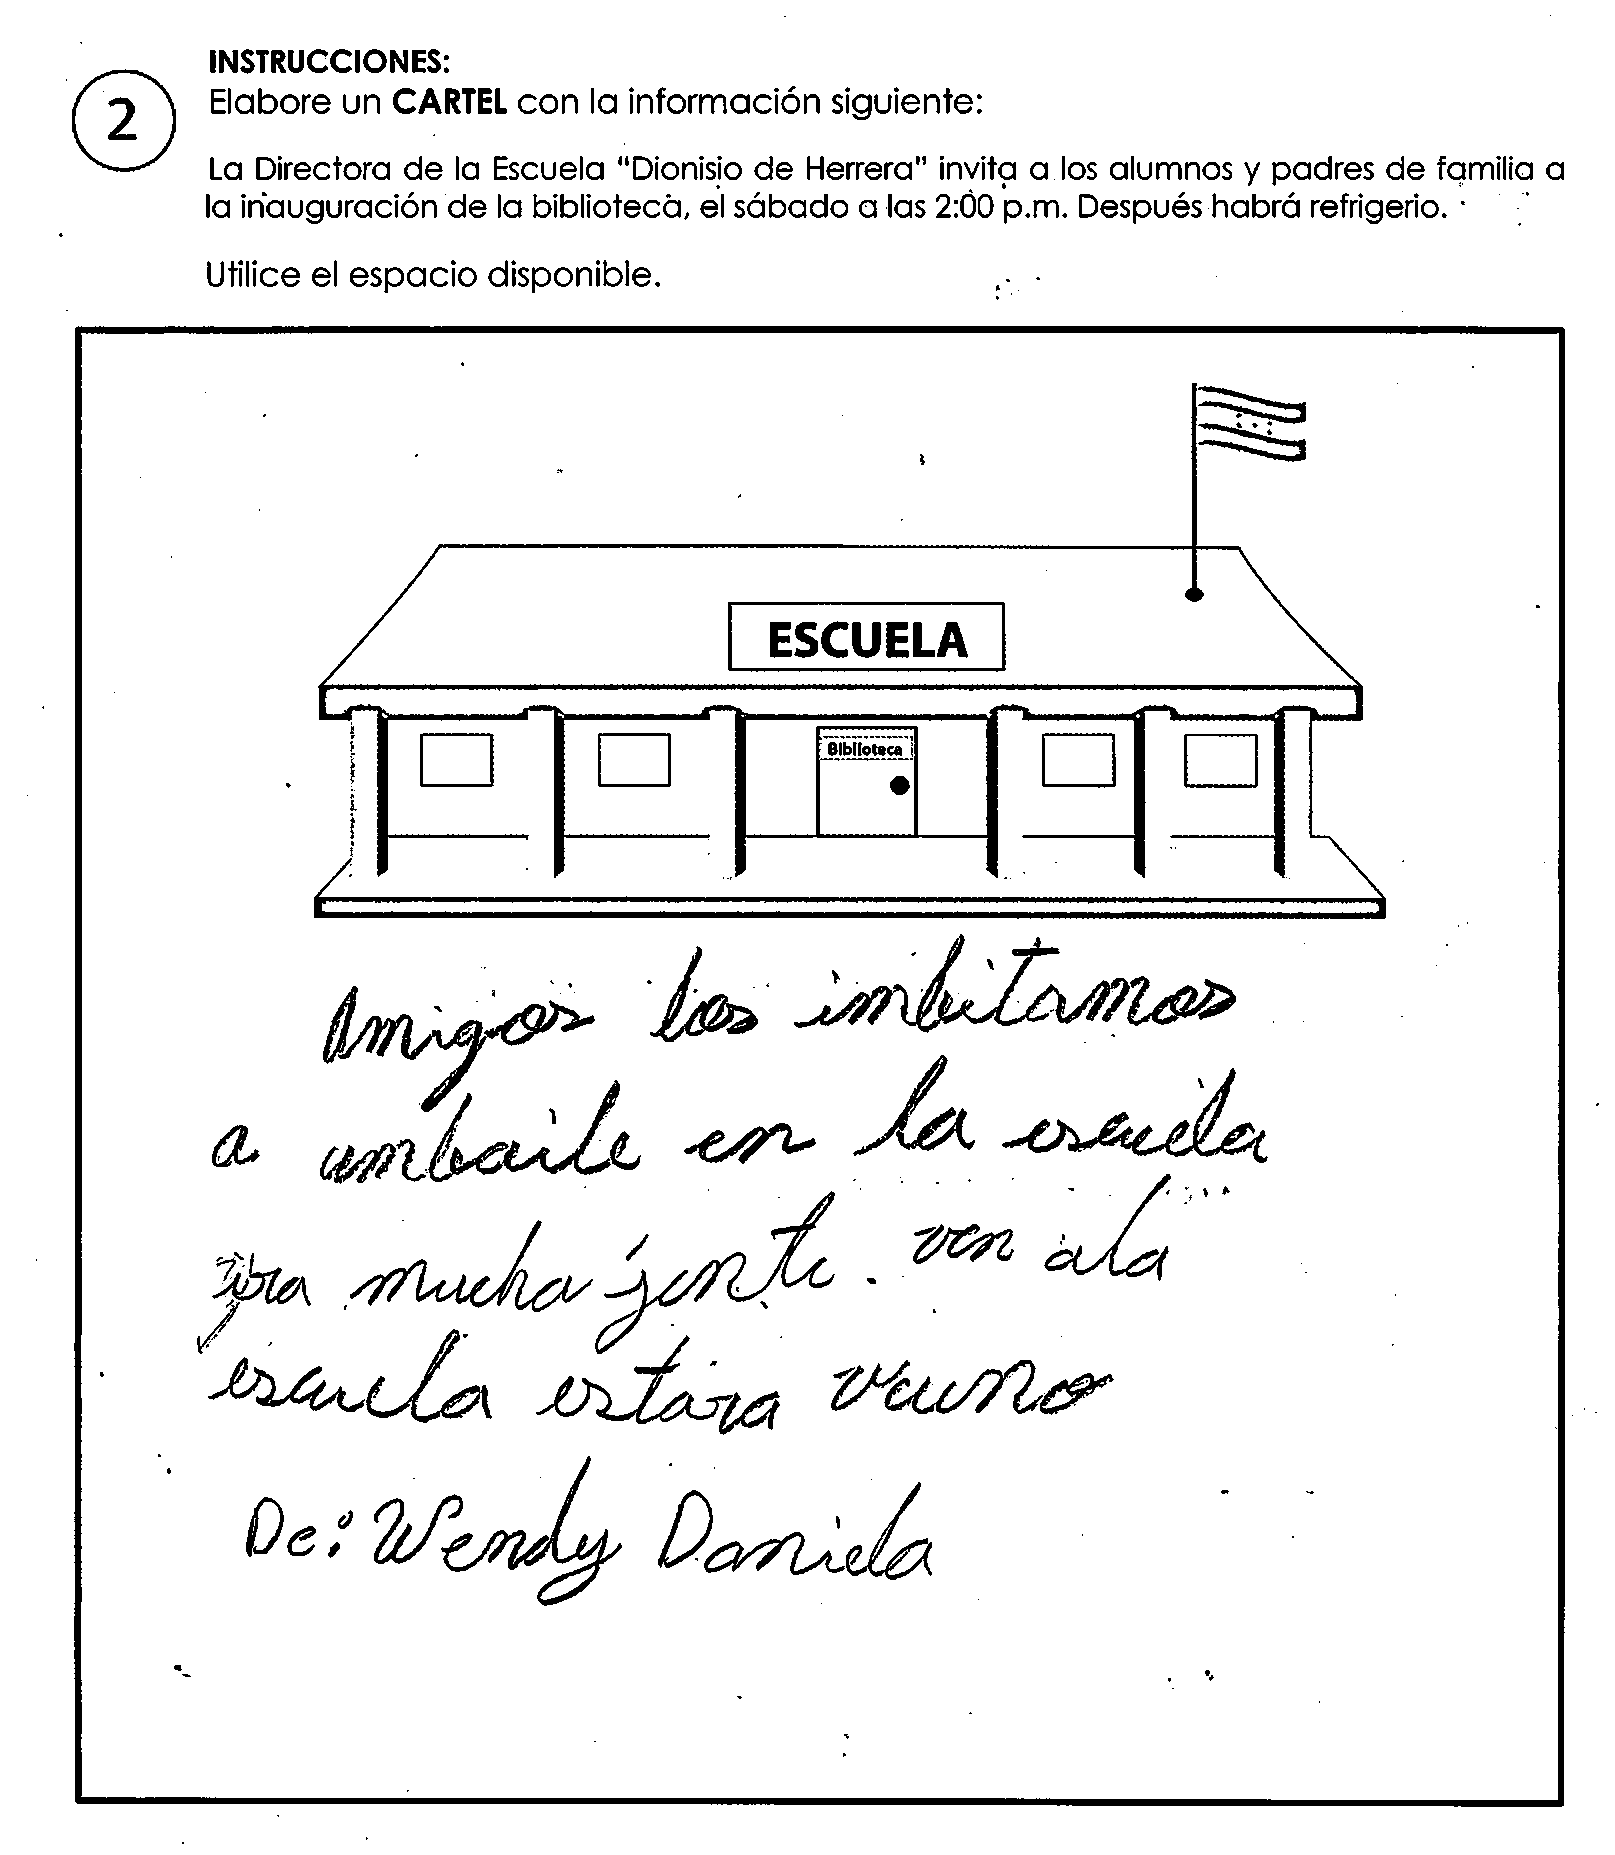 INSTRUCCIONES:
2
Elabore un CARTEL con la información siguiente:
La Directora de la Escuela "Dionisio de Herrera" invita a los alumnos y padres de familia a
la inauguración de la biblioteca, el sábado a las 2:00 p.m. Después habrá refrigerio.
Utilice el espacio disponible.
ESCUELA
Biblioteca
Amigos los imbitamos
a umbaile en la escuela
mucha jente. ven ala
escuela estara
De: Wendy Daniela